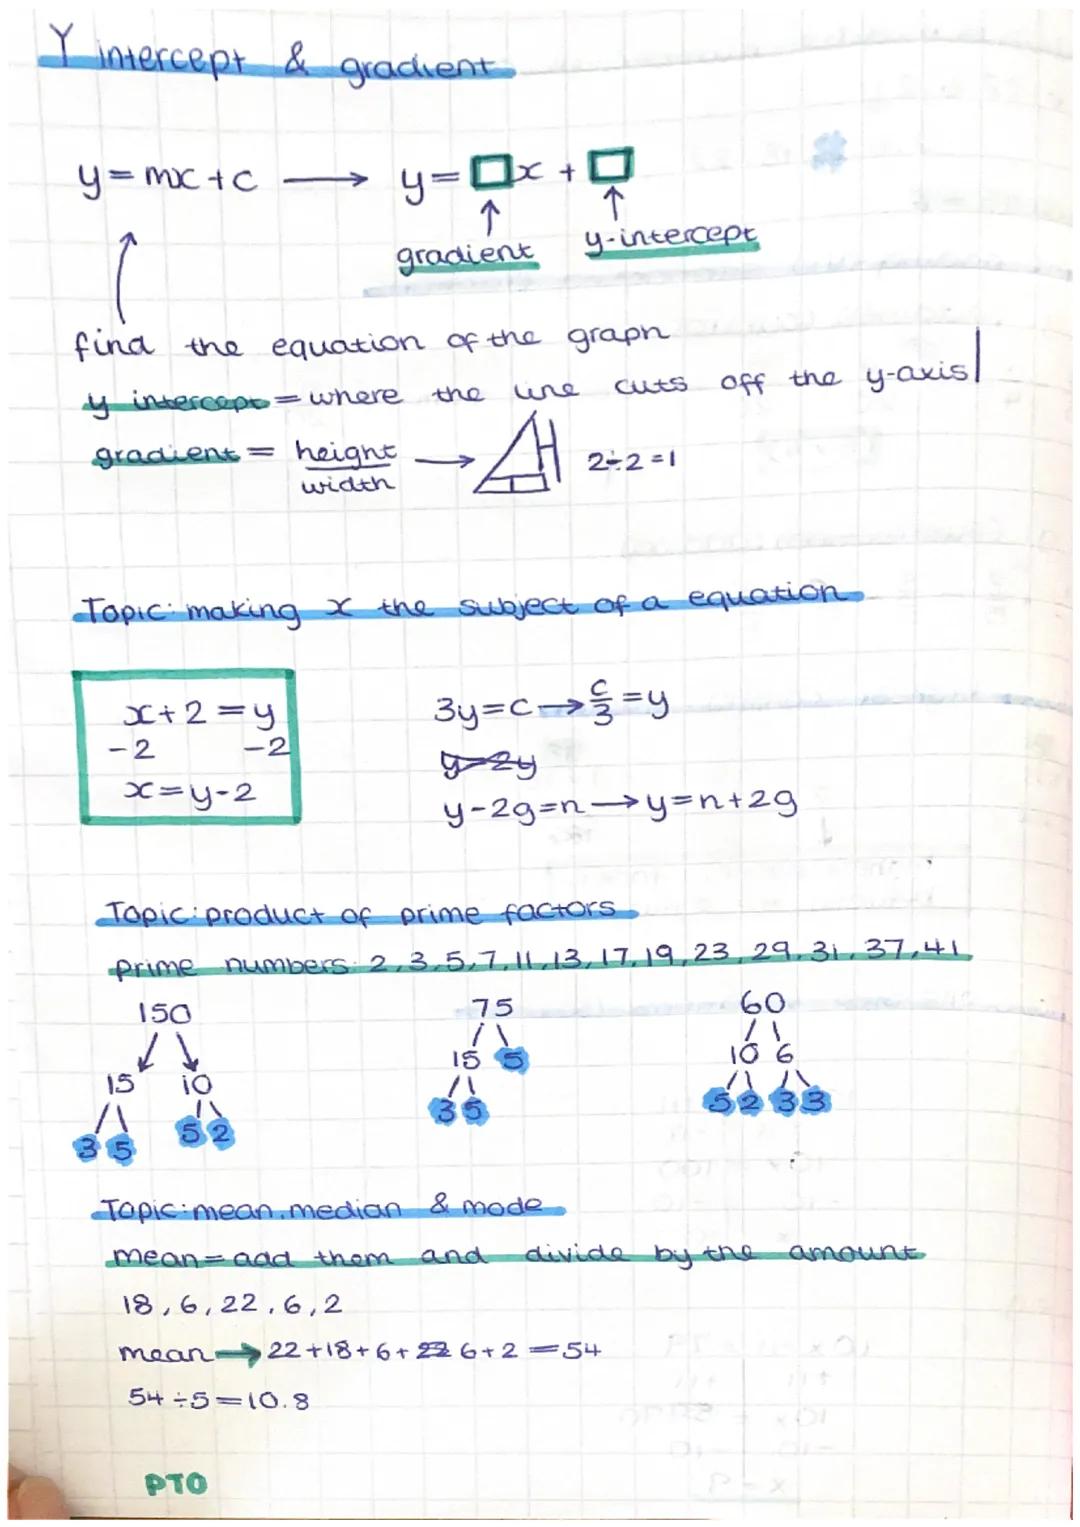 Y intercept & gradient
y = mx + c → y = □x + □
gradient y-intercept
find the equation of the graph
y intercept = where the line cuts off the y-axis
gradient = height/width → 2÷2=1
Topic: making x the subject of a equation
x+2=y
-2 -2
x=y-2
3y=c→c/3=y
y=2y
y-2g=n→y=n+2g
Topic: product of prime factors
prime numbers: 2,3,5,7,11,13,17,19,23,29,31,37,41
150 75 60
15 10 15 5 10 6
3 5 5 2 3 5 5 2 3 3
Topic: mean, median & mode
mean = add them and divide by the amount
18, 6, 22, 6, 2
mean → 22+18+6+22 6+2 = 54
54÷5=10.8
PTO